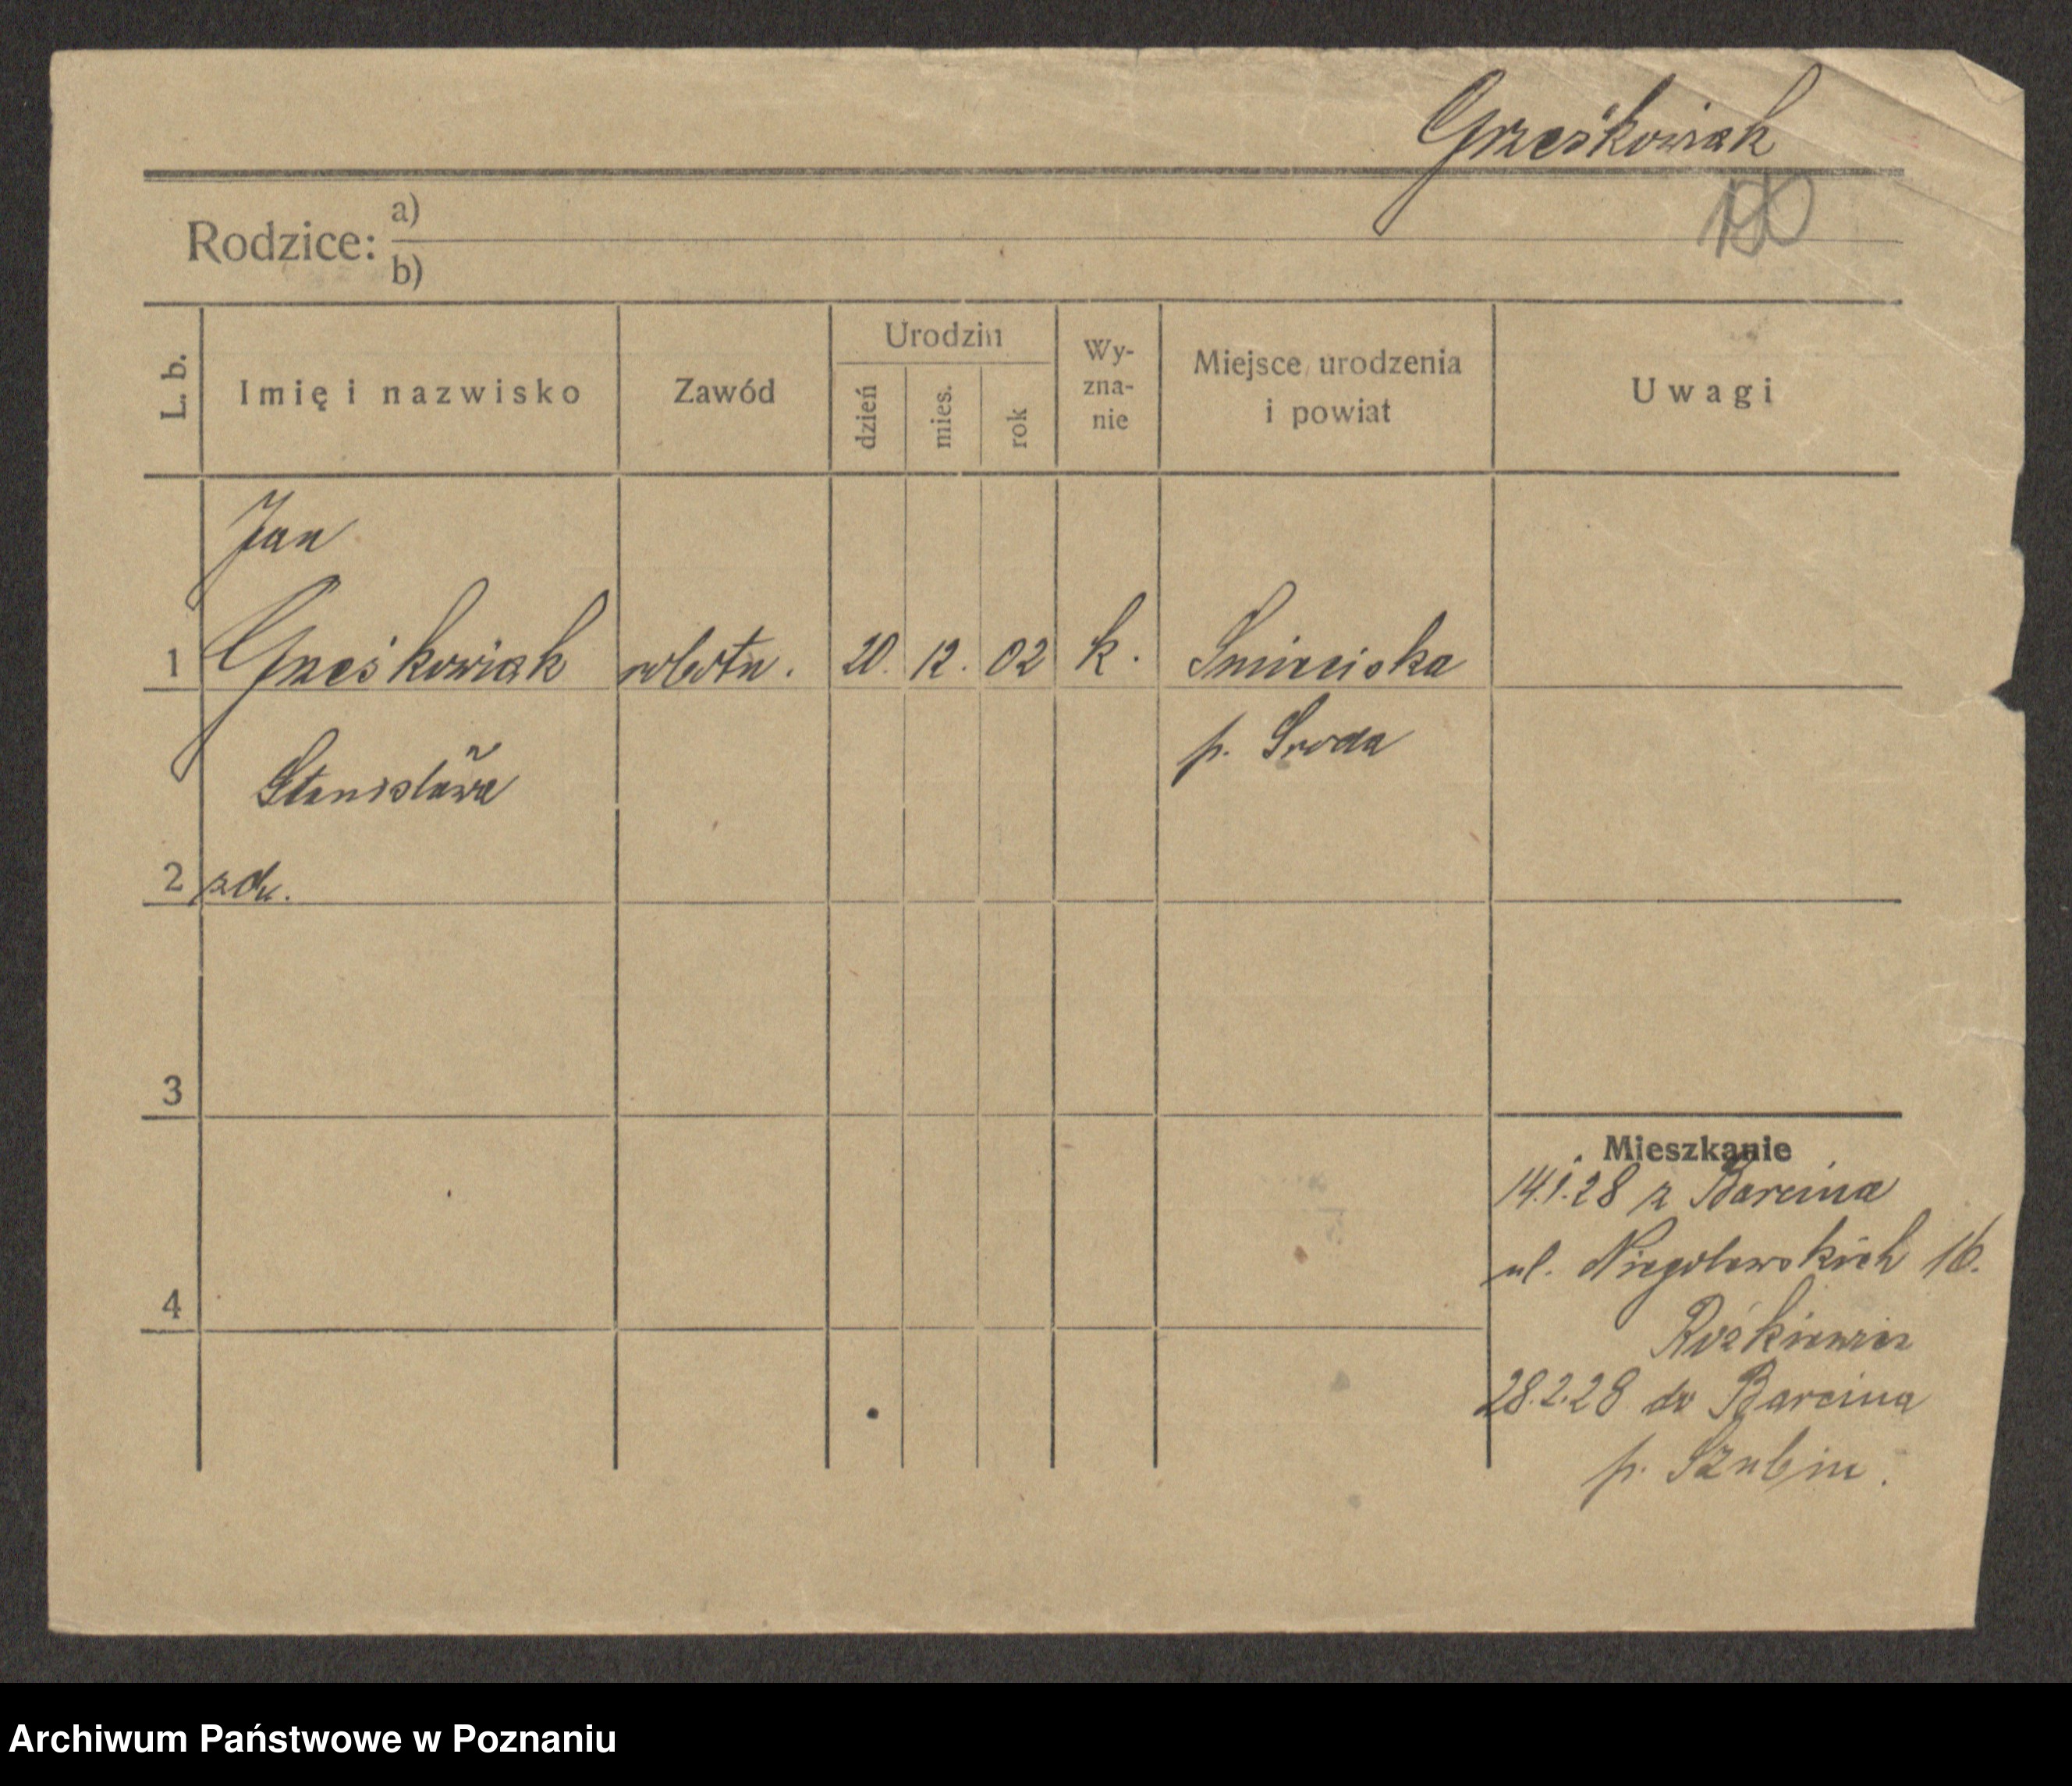 Grześkowiak
Rodzice: a)
b)
L. b.
Imię i nazwisko
Zawód
Urodzin
dzień
mies.
rok
Wy-
zna-
nie
Miejsce urodzenia
i powiat
Uwagi
Jan
1 Grześkowiak robotn. 20. 12. 02 k. Śnieciska
p. Środa
Stanisława
2
3
4
Mieszkanie
14.1.28 z Barcina
ul. Niegolewskich 16.
Różkiewicz
28.2.28 do Barcina
p. Szubin.
Archiwum Państwowe w Poznaniu